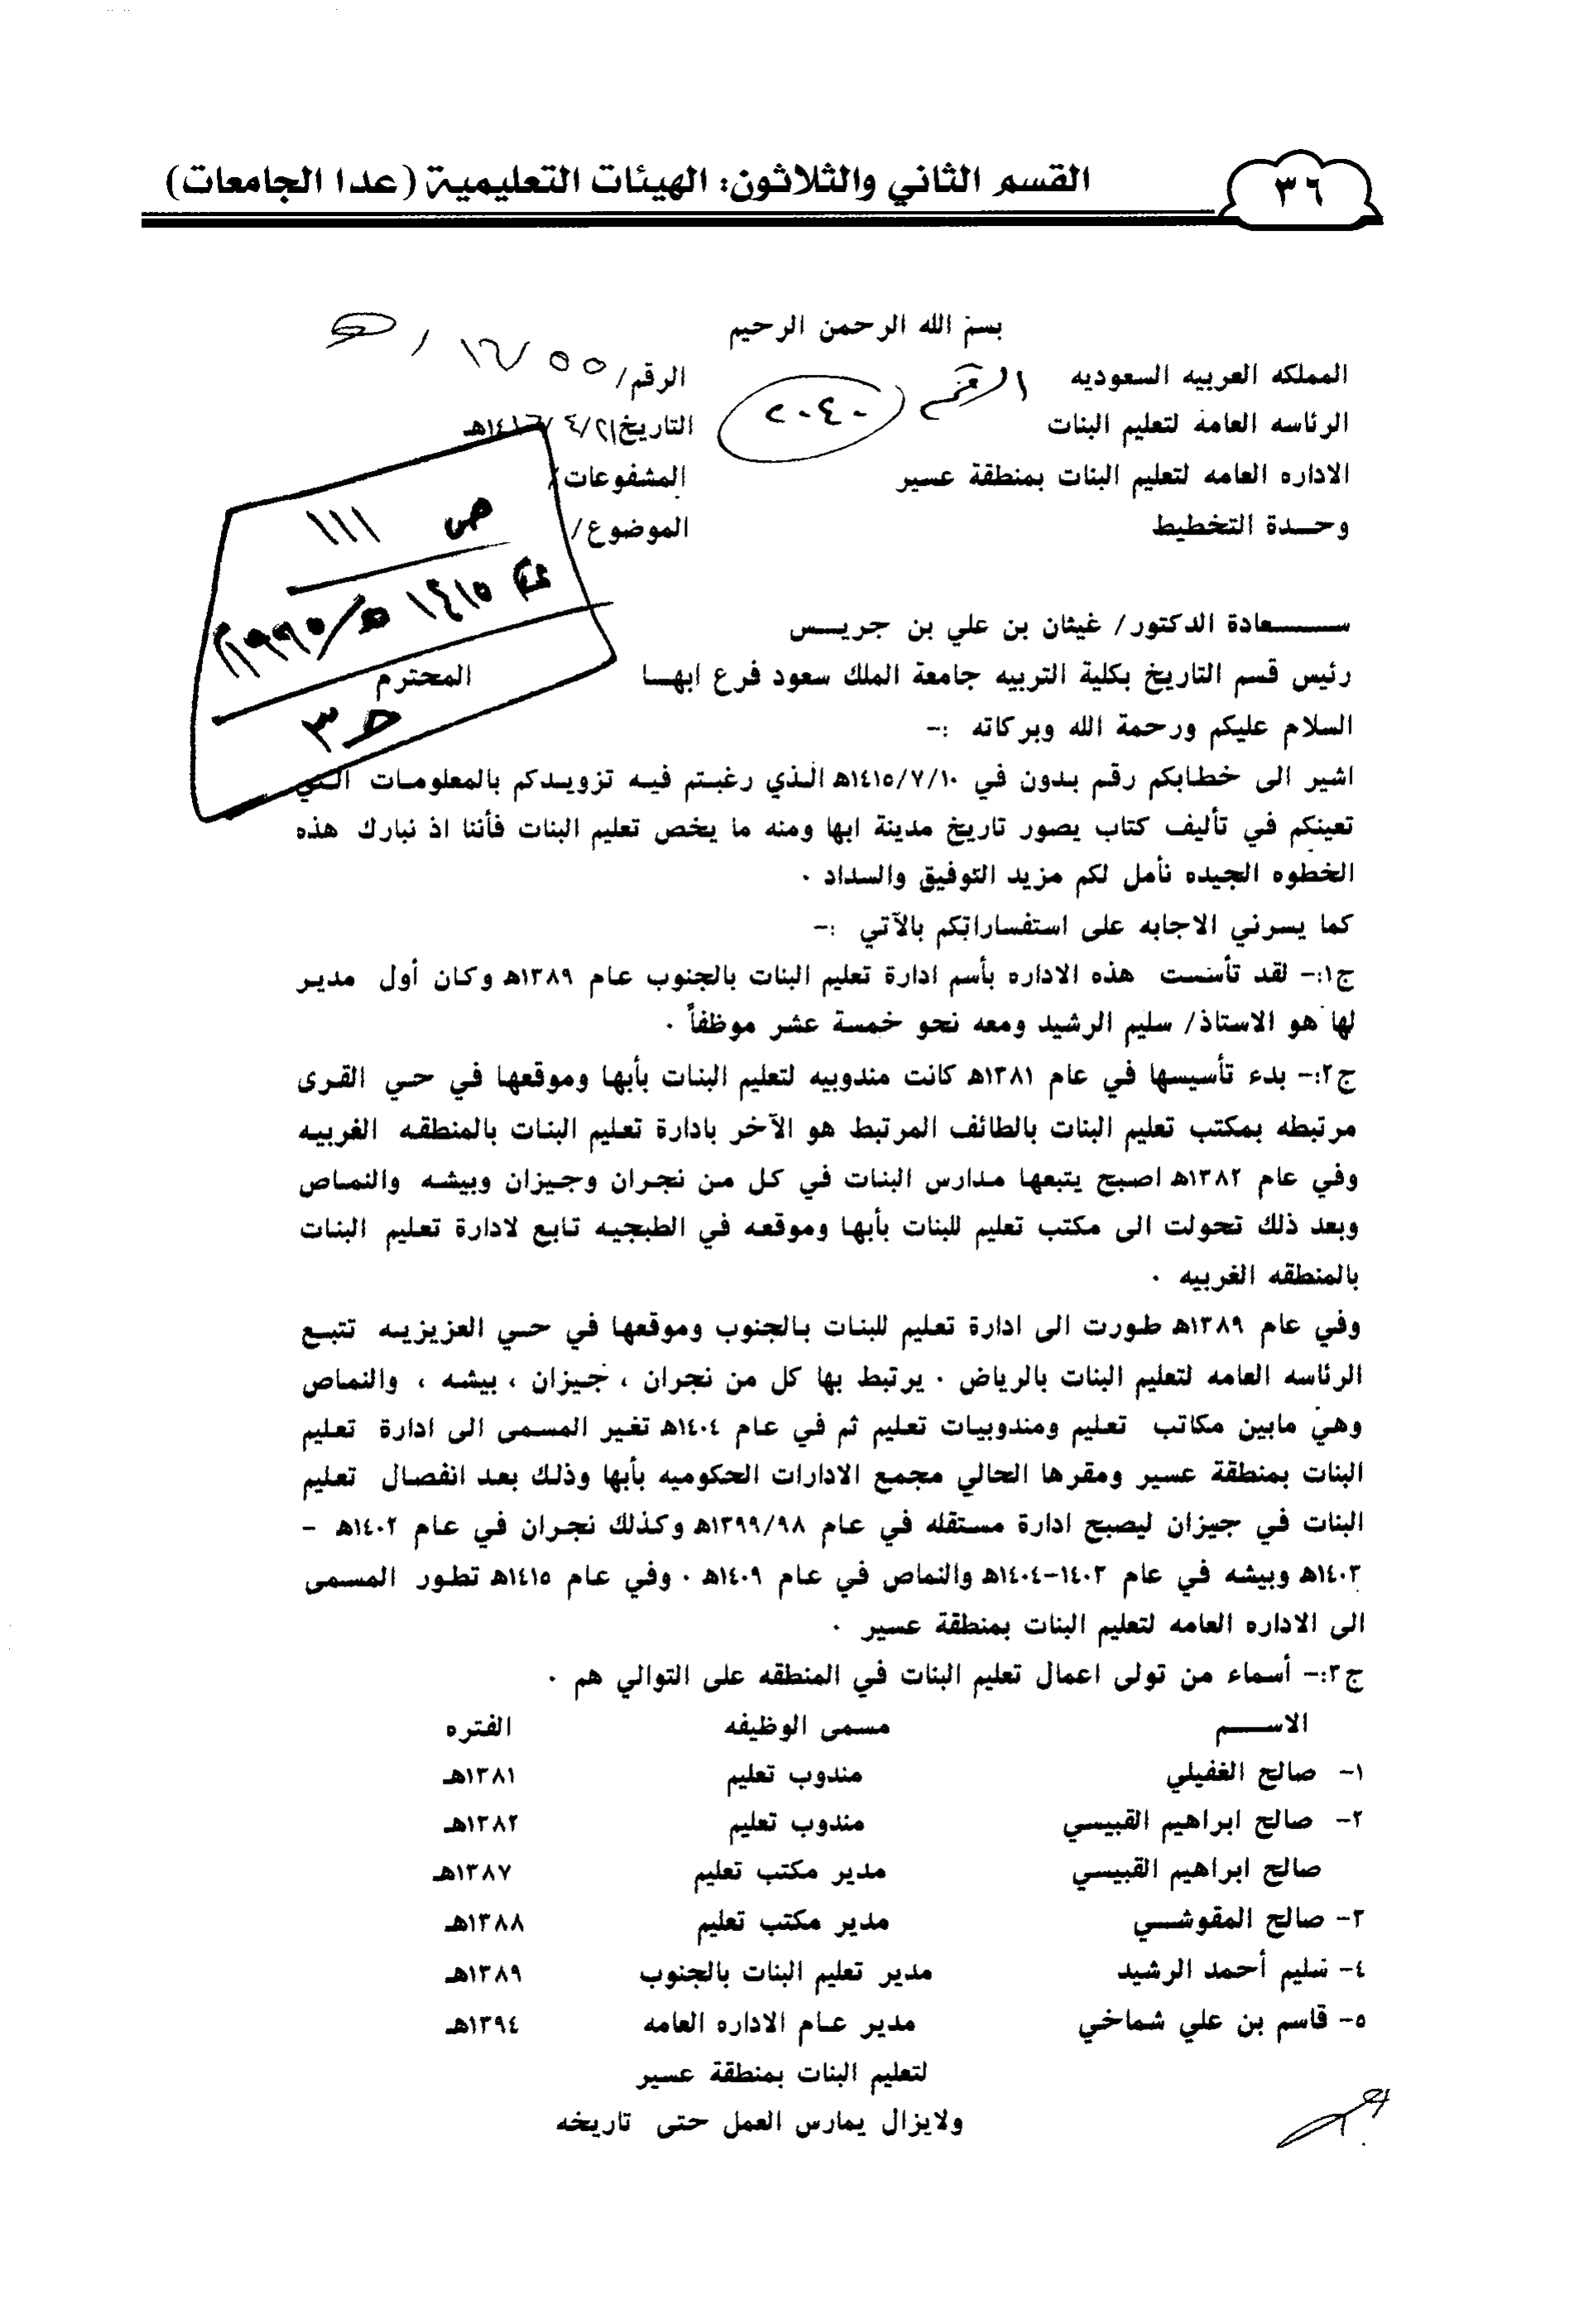 ٣٦
القسم الثاني والثلاثون: الهيئات التعليمية (عدا الجامعات)
بسم الله الرحمن الرحيم
المملكه العربيه السعوديه
الرئاسه العامة لتعليم البنات
الاداره العامه لتعليم البنات بمنطقة عسير
وحـــدة التخطيط
الرقم
٢٠٤٠
الرقم/ ٥٥
التاريخ ٢١/ ٤/ ١٤١٦هـ
المشفوعات/
الموضوع/
ص ١١١
١٤١٥هـ/١٩٩٥م
ح ٣
ســـــعادة الدكتور/ غيثان بن علي بن جريــس
رئيس قسم التاريخ بكلية التربيه جامعة الملك سعود فرع ابهــا المحترم
السلام عليكم ورحمة الله وبركاته :-
اشير الى خطابكم رقم بدون في ١٤١٥/٧/١٠هـ الذي رغبتم فيه تزويدكم بالمعلومات التي
تعينكم في تأليف كتاب يصور تاريخ مدينة ابها ومنه ما يخص تعليم البنات فأننا اذ نبارك هذه
الخطوه الجيده نأمل لكم مزيد التوفيق والسداد ٠
كما يسرني الاجابه على استفساراتكم بالآتي :-
ج١:- لقد تأسست هذه الاداره بأسم ادارة تعليم البنات بالجنوب عام ١٣٨٩هـ وكان أول مدير
لها هو الاستاذ/ سليم الرشيد ومعه نحو خمسة عشر موظفاً ٠
ج٢:- بدء تأسيسها في عام ١٣٨١هـ كانت مندوبيه لتعليم البنات بأبها وموقعها في حي القرى
مرتبطه بمكتب تعليم البنات بالطائف المرتبط هو الآخر بادارة تعليم البنات بالمنطقه الغربيه
وفي عام ١٣٨٢هـ اصبح يتبعها مدارس البنات في كل من نجران وجيزان وبيشه والنماص
وبعد ذلك تحولت الى مكتب تعليم للبنات بأبها وموقعه في الطبجيه تابع لادارة تعليم البنات
بالمنطقه الغربيه ٠
وفي عام ١٣٨٩هـ طورت الى ادارة تعليم للبنات بالجنوب وموقعها في حي العزيزيه تتبع
الرئاسه العامه لتعليم البنات بالرياض ٠ يرتبط بها كل من نجران ، جيزان ، بيشه ، والنماص
وهي مابين مكاتب تعليم ومندوبيات تعليم ثم في عام ١٤٠٤هـ تغير المسمى الى ادارة تعليم
البنات بمنطقة عسير ومقرها الحالي مجمع الادارات الحكوميه بأبها وذلك بعد انفصال تعليم
البنات في جيزان ليصبح ادارة مستقله في عام ١٣٩٩/٩٨هـ وكذلك نجران في عام ١٤٠٢هـ -
١٤٠٣هـ وبيشه في عام ١٤٠٣-١٤٠٤هـ والنماص في عام ١٤٠٩هـ ٠ وفي عام ١٤١٥هـ تطور المسمى
الى الاداره العامه لتعليم البنات بمنطقة عسير ٠
ج٣:- أسماء من تولى اعمال تعليم البنات في المنطقه على التوالي هم ٠
الاســـم مسمى الوظيفه الفتره
١- صالح الغفيلي مندوب تعليم ١٣٨١هـ
٢- صالح ابراهيم القبيسي مندوب تعليم ١٣٨٢هـ
صالح ابراهيم القبيسي مدير مكتب تعليم ١٣٨٧هـ
٣- صالح المقوشــي مدير مكتب تعليم ١٣٨٨هـ
٤- سليم أحمد الرشيد مدير تعليم البنات بالجنوب ١٣٨٩هـ
٥- قاسم بن علي شماخي مدير عام الاداره العامه ١٣٩٤هـ
لتعليم البنات بمنطقة عسير
ولايزال يمارس العمل حتى تاريخه